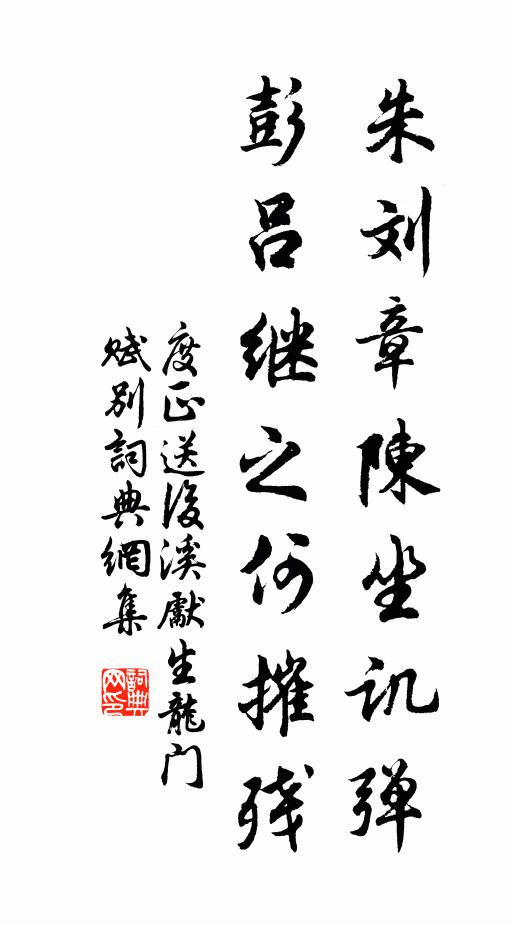 朱刘章陳坐讥弹
彭吕继之何摧残
度正送後溪獻生龍门
赋别詞典網集
詞典网印